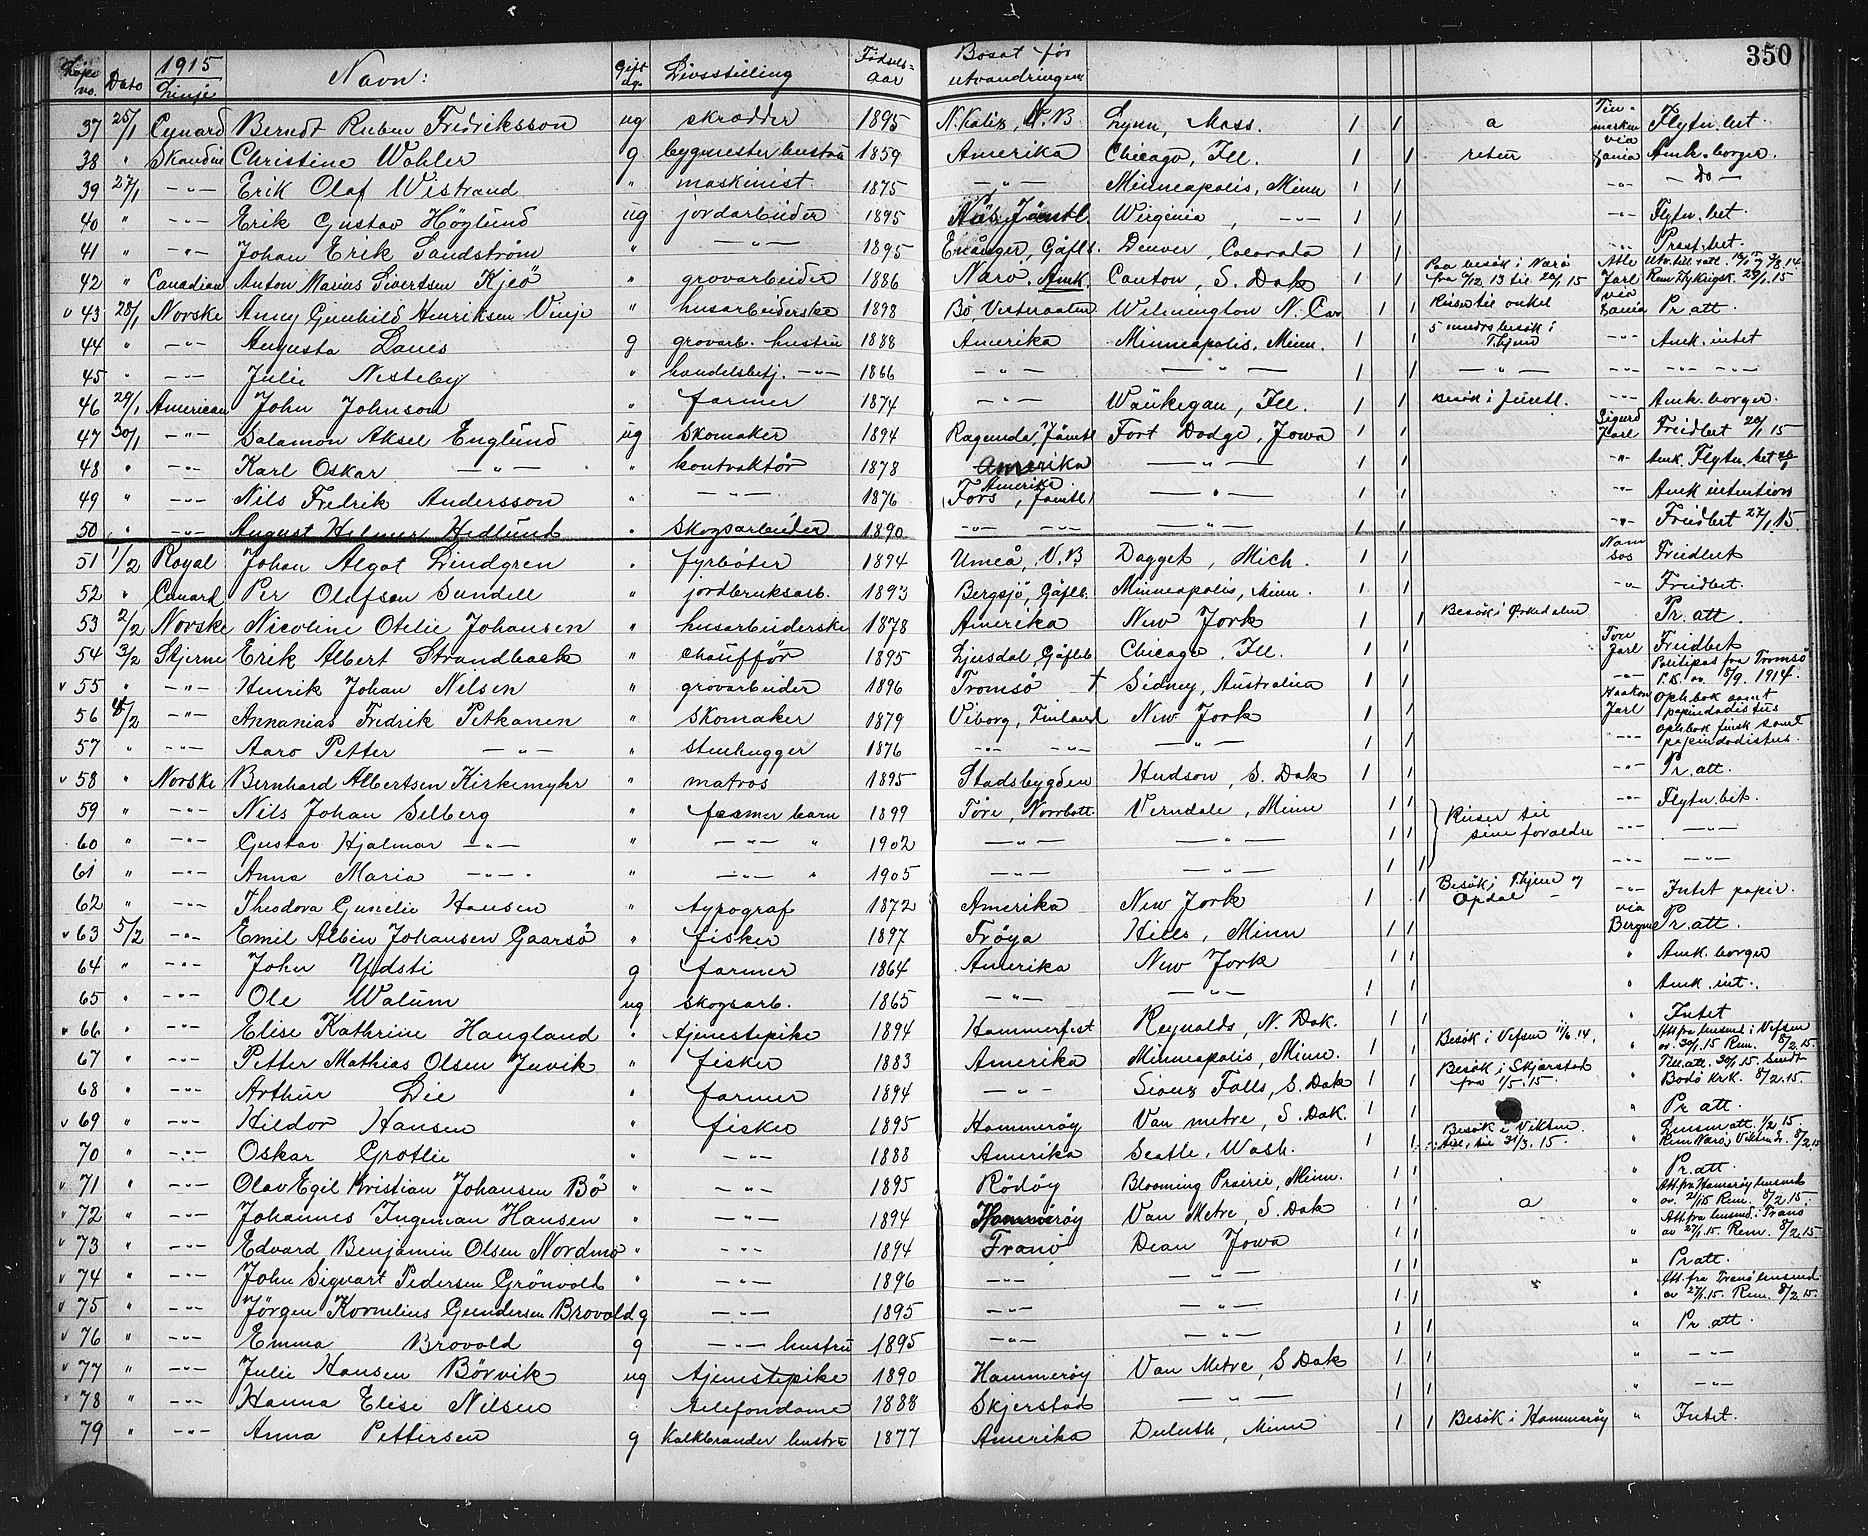 350
Löpe no. Dato 1915 Linje Navn: Gift ug. Livsstilling Födsels-aar Bosat för utvandringen
37 25/1 Cunard Berndt Ruben Fredriksson ug skrædder 1895 N. Kalix, N.B Lynn, Mass. 1 1 a Flytn. bet.
38 " Skandin Christine Wohler g bygmester hustru 1859 Amerika Chicago, Ill. 1 1 retur via Amk. borger.
39 27/1 -"- Erik Olof Wistrand " maskinist 1875 -"- Minneapolis, Minn 1 1 -"- - Do -
40 " -"- Erik Gustav Höglund ug jordarbeider 1895 Näs, Jämtl. Wirginia, -"- 1 1 -"- Flytn. bet.
41 " -"- Johan Erik Sandström " -"- 1895 Enånger, Gäfleb. Denver, Cocorado 1 1 -"- Prest. bet.
42 " Canadian Anton Marius Sivertsen Kjeö " grovarbeider 1886 Narö. Amk. Canton, S. Dak 1 1 Paa besök i Narö fra 6/12 13 til 20/1 15 Atle Jarl
43 28/1 Norske Anny Gunhild Henriksen Vinje " husarbeiderske 1898 Bö Vesteraalen Wilmington N. Car 1 1 Reiser til onkel via Pr att.
44 " -"- Augusta Lanes g grovarb. hustru 1888 Amerika Minneapolis, Minn. 1 1 5 mndrs besök i Thjem -"- Amk. intet
45 " -"- Julie Nesteby " handelsbetj. -"- 1866 -"- -"- 1 1 -"- -"- -"- -"-
46 29/1 American John Johnson " farmer 1874 -"- Waukegan, Ill. 1 1 Besök i Jämtl. -"- Amk. borger.
47 30/1 -"- Salamon Aksel Englund ug skomaker 1894 Ragunda, Jämtl Fort Dodge, Jowa 1 1 Sigurd Jarl Freidbet 20/1 15
48 " -"- Karl Oskar -"- " kontraktör 1878 Amerika -"- 1 1 -"- Amk. Flytn. bet
49 " -"- Nils Fredrik Andersson " -"- 1876 Amerika (Fors, Jämtl) -"- 1 1 -"- Amk intention
50 " -"- August Helmer Hedlund " skogsarbeider 1890 -"- -"- -"- 1 1 -"- Freidbet 27/1 15
51 1/2 Royal Johan Algot Lindgren " fyrböter 1894 Umeå, V.B Dagget, Mich. 1 1 Namsos Freidbet
52 " Cunard Per Olofson Sundell " jordbruksarb. 1893 Bergsjö, Gäfleb. Minneapolis, Minn. 1 1 -"- Freidbet.
53 2/2 Norske Nicoline Otelie Johansen " husarbeiderske 1878 Amerika New Jork 1 1 Besök i Orkedalen Pr. att.
54 3/2 Stjerne Erik Albert Strandback " chaufför 1895 Ljusdal, Gäfleb Chicago, Ill. 1 1 Tore Jarl Freidbet
55 " -"- Henrik Johan Nilsen " grovarbeider 1896 Tromsö + Sidney, Australien 1 1 -"- Politipas fra Tromsö P.K. av 15/9. 1914.
56 4/2 -"- Annanias Fredrik Petkanen " skomaker 1879 Viborg, Finland New Jork 1 1 Haakon Jarl
57 " -"- Aaro Petter -"- " stenhugger 1876 -"- -"- -"- 1 1 -"-
58 " Norske Bernhard Albertsen Kirkemyhr " matros 1895 Stadsbygden Hudson, S. Dak 1 1 -"- Pr. att.
59 " -"- Nils Johan Selberg " farmer barn 1899 Töre, Norrbott. Verndale, Minn 1 1 Reiser til sine forældre -"- Flytn. bet.
60 " -"- Gustav Hjalmar -"- " -"- " 1902 -"- -"- 1 1 -"- -"-
61 " -"- Anna Maria -"- " -"- " 1905 -"- -"- 1 1 -"- -"-
62 " -"- Theodora Gunelie Hansen " typograf 1872 Amerika New Jork 1 1 Besök i Thjem og Opdal -"- Intet papir.
63 5/2 -"- Emil Albin Johansen Gaarsö " fisker 1897 Fröya Hills, Minn 1 1 via Bergen Pr. att.
64 " -"- John Udsti g farmer 1864 Amerika New Jork 1 1 " Amk. borger
65 " -"- Ole Walum ug skogsarb. 1865 -"- -"- 1 1 " Amk. int.
66 " -"- Elise Kathrine Haugland " tjenestepike 1894 Hammerfest Reynolds, N. Dak. 1 1 " Intet
67 " -"- Petter Mathias Olsen Juvik " fisker 1883 Amerika Minneapolis, Minn. 1 1 Besök i Vefsen 11/6 14. " Att. fra lensmd i Vefsen av. 30/1 15 Rem. 8/2. 15.
68 " -"- Arthur Lie " farmer 1894 -"- Sioux Falls, S. Dak 1 1 Besök i Skjerstad fra 1/5. 15. " Bodö Krk. 8/2. 15.
69 " -"- Hildor Hansen " fisker 1895 Hammeröy Van metre, S. Dak. 1 1 " Pr att.
70 " -"- Oskar Grotlie " -"- 1888 Amerika Seatle, Wash. 1 1 Besök i Vikten. til 31/3. 15. " Lensm att. 1/2 15.
71 " -"- Olav Egil Kristian Johansen Bö " -"- 1895 Rödöy Blooming Prairie, Minn. 1 1 " Pr. att.
72 " -"- Johannes Ingeman Hansen " -"- 1894 Hammeröy Van Metre, S. Dak 1 1 a " Att. fra Hameröy lensmd av. 21/15 Rem. 8/2. 15.
73 " -"- Edvard Benjamin Olsen Nordmo " -"- 1894 Tranö Dean Jowa 1 1 " Att. fra lensmd. i Tranö av 27/1. 15. Rem. 8/2. 15.
74 " -"- John Sigvart Pedersen Grönvold " -"- 1896 -"- -"- 1 1 " Pr att.
75 " -"- Jörgen Kornelius Gundersen Brovold g -"- 1895 -"- -"- 1 1 " Att. fra Tranö lensmd. av 27/1. 15. Rem. 8/2. 15.
76 " -"- Emma Brovold g -"- hustru 1895 -"- -"- 1 1 " Pr. att.
77 " -"- Julie Hansen Börvik ug tjenestepike 1890 Hammeröy Van Metre, S Dak 1 1 -"-
78 " -"- Hanna Elise Nilsen telefondame 1888 Skjerstad -"- 1 1 " -"-
79 " -"- Anna Pettersen g Kalkbrænder hustru 1877 Amerika Duluth, Minn 1 1 Besök i Hammeröy " Intet.